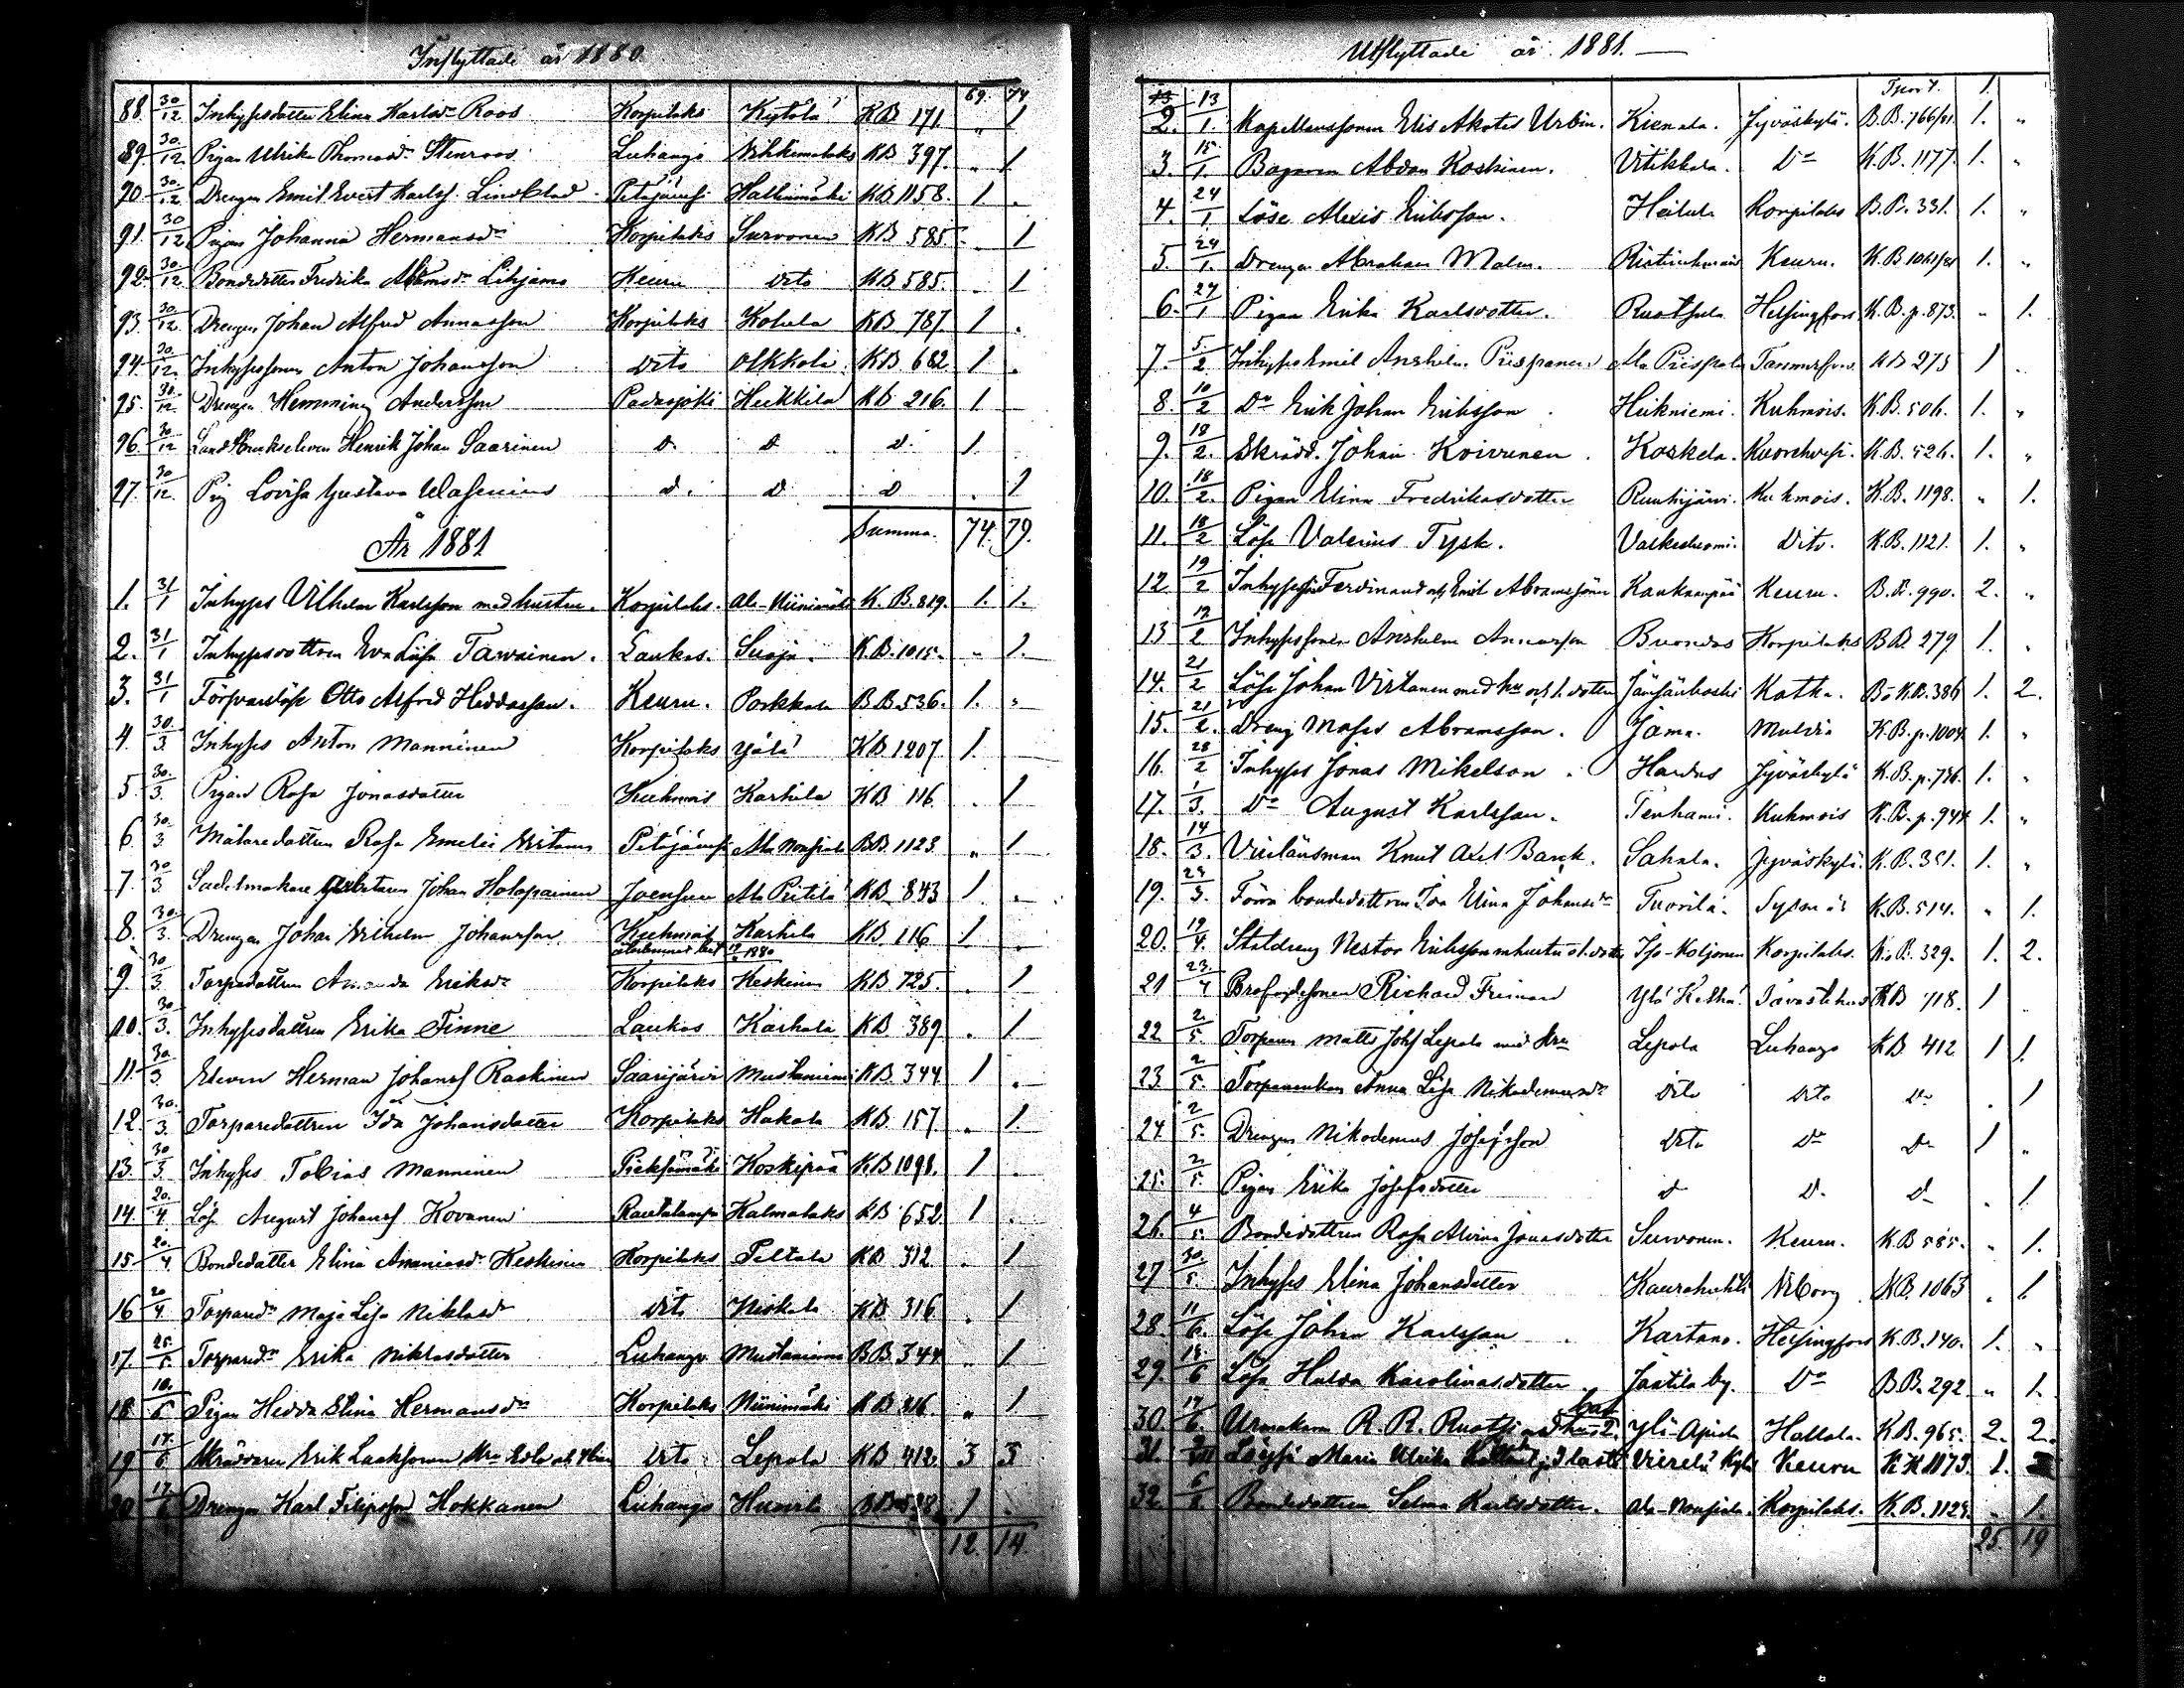 Inflyttade år 1880.
69. 74
88. 30/12 Inhysesdotter Elina Karlsdr Roos Korpilaks Kytölä KB 171. " 1
89. 30/12 Pigan Ulrika Thomasdr Stenroos Luhango KB 397. " 1
90. 30/12 Drengen Emil Evert Karlss. Lindblad Petäjävesi Halkimäki KB 1158. 1 .
91. 30/12 Pigan Johanna Hermansdr Korpilaks Survonen KB 585. . 1
92. 30/12 Bondedotter Fredrika Keuru dito KB 585. . 1
93. 30/12 Drengen Johan Alfred Annasson Korpilaks Kohula KB 787. 1 .
94. 30/12. Inhysessonen Anton Johansson Dito Olkkola KB 682 1 .
95. 30/12 Drengen Hemming Andersson Padasjoki Heikkilä KB 216. 1
96. 30/12 Henrik Johan Saarinen d. d d. 1.
97. 30/12. Pig Lovisa Gustava Wasenius d. d d . 1
Summa. 74. 79.
År 1881
1. 31/1 Inhyses Vilhelm Karlsson med hustru. Korpilaks. Ala-Niinimäki K.B. 819. 1. 1.
2. 31/1 Inhysesdottren Eva Lisa Tarvainen. Laukas. Suoja. K.B. 1015. " 1.
3. 31/1 Försvarslöse Otto Alfred Heddasson. Keuru. Porkkala B.B. 536. 1. "
4. 30/3. Inhyses Anton Manninen Korpilaks KB 1207. 1.
5. 30/3. Pigan Rosa Jonasdotter Kuhmois Karhila KB 116 . 1
6. 30/3. Målaredottren Rosa Emelie Virtanen Petäjävesi Ala Nousiala BB 1123. " 1
7. 30/3 Sadelmakare Johan Holopainen Joensuu Ala Piitilä KB 843 1 .
8. 30/3. Drengen Johan Vilhelm Johansson Kuhmois Karhila KB 116 1 .
1880
9. 30/3. Torpedottren Amanda Eriksdr Korpilaks Keskinen KB 725. . 1
10. 30/3. Inhysesdottren Erika Finne Laukas Karhala KB 389 . 1
11. 30/3. Eleven Herman Johanss Raskinen Saarijärvi Mustaniemi KB 344 1 .
12. 30/3. Torparedottren Ida Johansdotter Korpilaks Hakala KB 157. " 1
13. 30/3. Inhyses Tobias Manninen Pieksämäki Koskipää KB 1098. 1 .
14. 20/4. Lös August Johanss Kovanen Rautalampi Kalmalaks KB 652. 1 .
15. 20/4. Bondedotter Elina Ananiasdr Keskinen Korpilaks Peltola KB 312 . 1
16 20/4. Torparedr Maja Lisa Niklasdr Dito Niskala KB 316 . 1
17. 25/5. Torparedr Erika Niklasdotter Luhango Mustaniemi BB 344 " 1
18. 10/6 Pigan Hedda Elina Hermansdr Korpilaks Niinimäki KB 816. " 1
19 17/6 Skräddaren Erik Laaksonen Dito Lepola KB 412. 3 3
20 17/6 Drengen Karl Filipsson Hokkanen Luhango BB 538. 1 .
12. 14.
Utflyttade år 1881.
Tport. 1.
2. 13/1. Kapellanssonen Elis Akates Urbin. Kienala. Jyväskylä. B.B. 766/81. 1. "
3. 15/1. Bagaren Abdon Koskinen. Vitikkala. Do K.B. 1177. 1. "
4. 24/1. Löse Alexis Eriksson. Heilala Korpilaks B.B. 331. 1. "
5. 24/1. Drengen Abraham Malm. Keuru. K.B. 1061/81 1. "
6. 24/1 Pigan Erika Karlsdotter. Ruotsula Helsingfors K.B. p. 873. " 1.
7. 5/2 Inhyses Emil Anshelm Piispanen Ala Piispala Tammerfors KB 275 1
8. 10/2 Do Erik Johan Eriksson Heikniemi. Kuhmois. K.B. 506. 1. "
9. 18/2. Skrädd. Johan Koivunen. Koskela. Kuorehvesi. K.B. 526. 1. "
10. 18/2. Pigan Elina Fredriksdotter Ruuhijärvi. Kuhmois. K.B. 1198. " 1.
11. 18/2 Löse Valerius Tysk. Valkeaniemi. Dito. K.B. 1121. 1. "
12. 19/2 Inhysess. Ferdinand och Emil Abramssöner Kaukaanpää Keuru. B.B. 990. 2. "
13 19/2 Inhysessonen Anshelm Annasson Korpilaks BB 279 1. .
14. 21/2 Löse Johan Virtanen med hu och 1. dotter Jämsänkoski Kotka. Bo K.B. 386 1. 2.
15. 21/2. Dreng Moses Abramsson. Jama. Multia K.B. p. 1004. 1. "
16. 28/2 Inhyses Jonas Mikelson. Hardus Jyväskylä K.B. p. 736. 1. "
17. 1/3. Do August Karlsson. Tenhami. Kuhmois K.B. p. 944. 1. "
18. 14/3. Vicelänsman Knut Axel Banck. Sahala. Jyväskylä. K.B. 351. 1. "
19. 23/3. Förra bondedottren Ida Elina Johansdr Tuorila. Sysmä K.B. 514. " 1.
20. 19/4. Stataldreng Nestor Eriksson m hustru o 1. dotter Iso-Koljonen Korpilaks. K.B. 329. 1. 2.
21 23/4 Richard Friman Ylä Kelhä Tavastehus KB 718. 1
22 2/5. Torparen Matts Johss Lepola med hru Lepola Luhango KB 412 1 1.
23 2/5. Torpareenkan Anna Lisa Nikodemusdr Dito Dito Do . 1
24. 2/5. Drengen Nikodemus Josefsson Dito Do Do 1 "
25. 2/5. Pigan Erika Josefsdotter d D. D . 1.
26. 4/5. Bondedottren Rosa Alvina Jonasdotter Survonen. Keuru. K.B 585. " 1.
27 30/5 Inhyses Elina Johansdotter Kaurahuhta Viborg KB. 1063 . 1.
28. 11/6. Löse Johan Karlsson Kartano. Helsingfors K.B. 140. 1. "
29. 18/6 Lösa Hulda Karolinasdotter Jaatila by. Do B.B. 292 " 1.
30. 17/6 Urmakaren R. R. Ruotsi med hru 2. barn Ylä-Apiala Hattula. K.B. 965. 2. 2.
31. Maria Ulrika Vierelä Kylä Keuru KK 1173. 1.
32 Bondedottren Selma Karlsdotter. Ala-Nousiala. Korpilaks. K.B. 1123. . 1.
25. 19